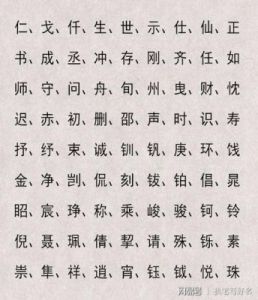 仁、戈、仟、生、世、示、仕、仙、正
书、成、丞、冲、存、刚、齐、任、如
师、守、问、舟、旬、州、曳、财、忱
迟、赤、初、删、邵、声、时、识、寿
抒、纾、束、诚、钏、钒、庚、环、饯
金、净、剀、侃、刻、钹、铂、倡、晁
昭、宸、琤、称、乘、峻、骏、钶、铃
倪、聂、珮、倩、挈、请、殊、铄、素
崇、隼、祥、逍、宵、钰、钺、悦、珠
搜狐号@执笔写好名